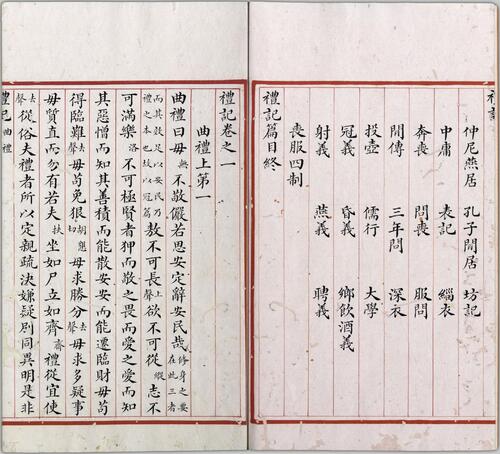 仲尼燕居 孔子閒居 坊記
中庸 表記 緇衣
奔喪 問喪 服問
間傳 三年問 深衣
投壺 儒行 大學
冠義 昏義 鄉飲酒義
射義 燕義 聘義
喪服四制
禮記篇目終
禮記卷之一
曲禮上第一
曲禮曰毋無不敬儼若思安定辭安民哉修身之要在此三者
而其效足以安民乃禮之本也故以冠篇敖不可長上聲欲不可從縱志不
可滿樂洛不可極賢者狎而敬之畏而愛之愛而知
其惡憎而知其善積而能散安安而能遷臨財毋苟
得臨難去聲毋苟免狠胡墾切毋求勝分去聲毋求多疑事
毋質直而勿有若夫扶坐如尸立如齊齋禮從宜使
去聲從俗夫禮者所以定親疏決嫌疑別同異明是非
禮記 曲禮